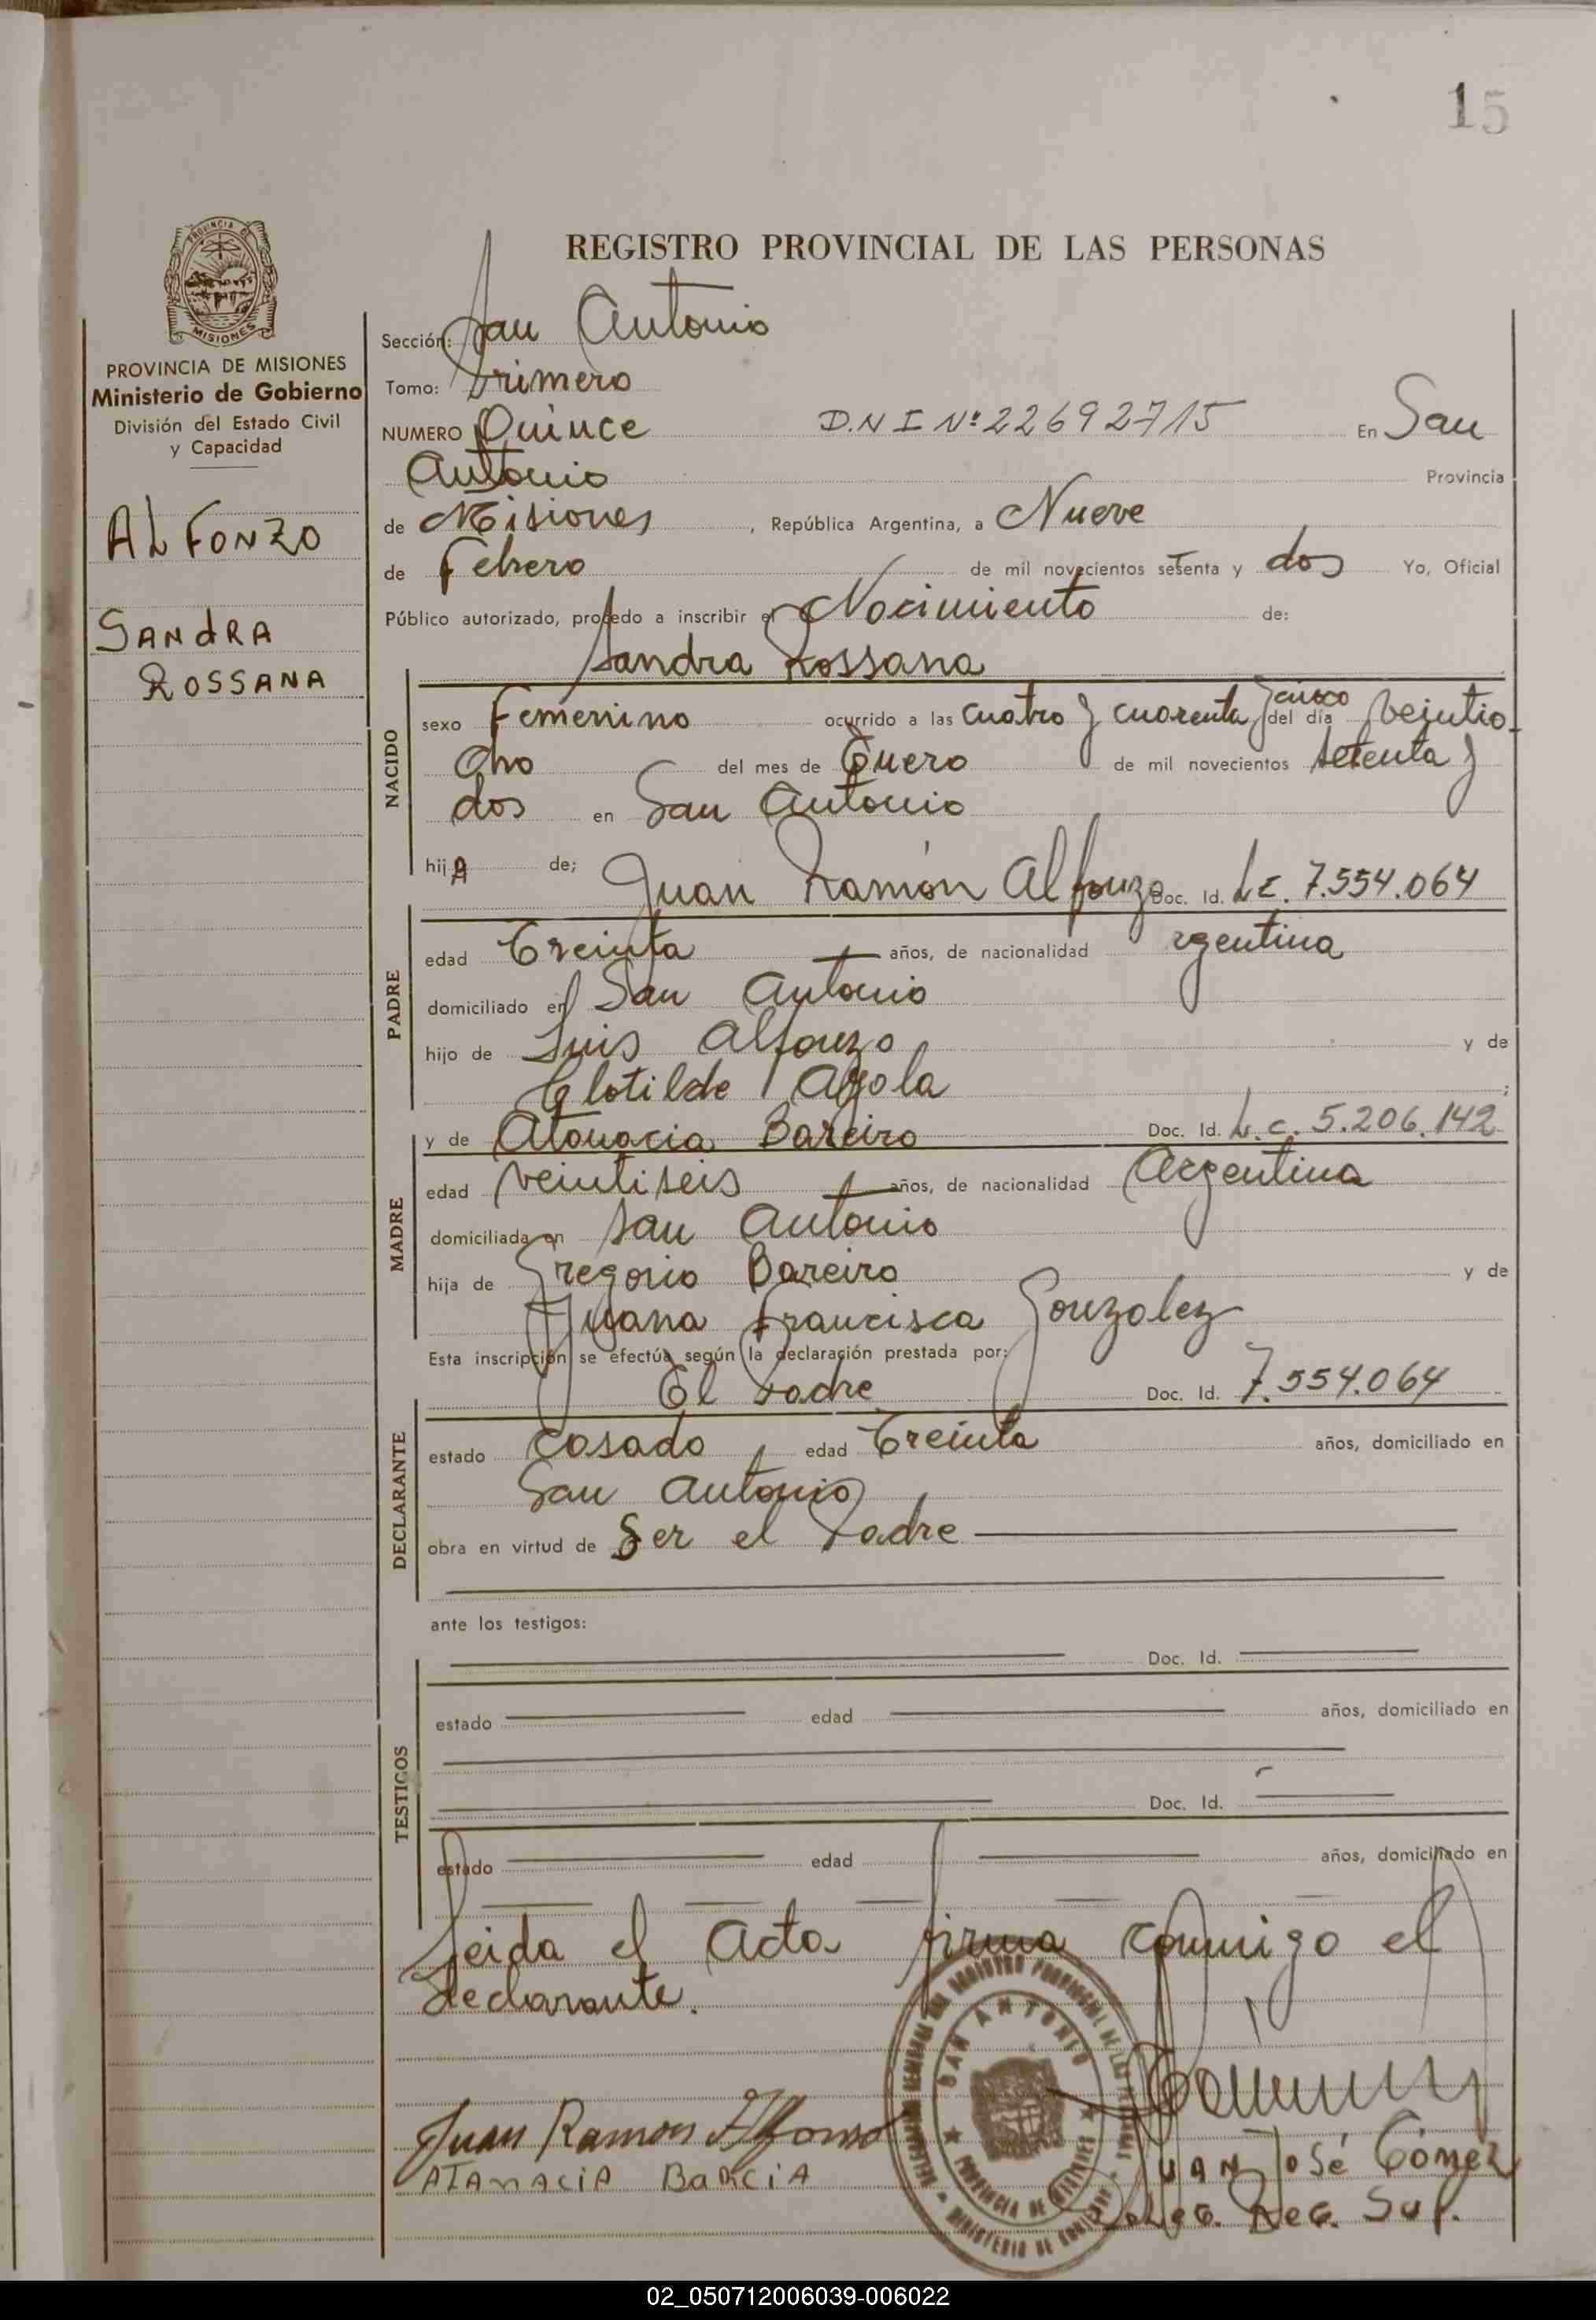 15
PROVINCIA DE
MISIONES
PROVINCIA DE MISIONES
Ministerio de Gobierno
División del Estado Civil
y Capacidad
ALFONZO
SANDRA
ROSSANA
REGISTRO PROVINCIAL DE LAS PERSONAS
Sección: San Antonio
Tomo: Primero
NUMERO Quince D.N.I Nº 22692715 En San
Antonio Provincia
de Misiones, República Argentina, a Nueve
de Febrero de mil novecientos setenta y dos Yo, Oficial
Público autorizado, procedo a inscribir el Nacimiento de:
Sandra Rossana
NACIDO
sexo Femenino ocurrido a las cuatro y cuarenta y cinco del día Veintio
cho del mes de Enero de mil novecientos setenta y
dos en San Antonio
hijA de; Juan Ramón Alfonzo Doc. Id. L.E. 7.554.064
PADRE
edad Treinta años, de nacionalidad Argentina
domiciliado en San Antonio
hijo de Luis Alfonzo y de
Clotilde Ayola;
y de Atanacia Bareiro Doc. Id. L.c. 5.206.142
MADRE
edad veintiseis años, de nacionalidad Argentina
domiciliada en San Antonio
hija de Gregorio Bareiro y de
Juana Francisca Gonzalez
Esta inscripción se efectúa según la declaración prestada por:
El Padre Doc. Id. 7.554.064
DECLARANTE
estado Casado, edad Treinta años, domiciliado en
San Antonio
obra en virtud de Ser el Padre
ante los testigos:
Doc. Id.
TESTIGOS
estado edad años, domiciliado en
Doc. Id.
estado edad años, domiciliado en
Leida el Acta firma conmigo el
declarante.
SAN ANTONIO
PROVINCIA DE MISIONES
Juan Ramon Alfonso
ATANACIA BARCIA
JUAN JOSé Gómez
Deleg. Reg. Sup.
02_050712006039-006022